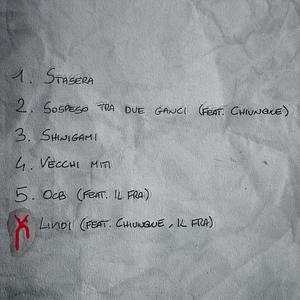 1. STASERA
2. SOSPESO TRA DUE GANCI (FEAT. CHIUNQUE)
3. SHINIGAMI
4. VECCHI MITI
5. OCB (FEAT. IL FRA)
X LIVIDI (FEAT. CHIUNQUE, IL FRA)